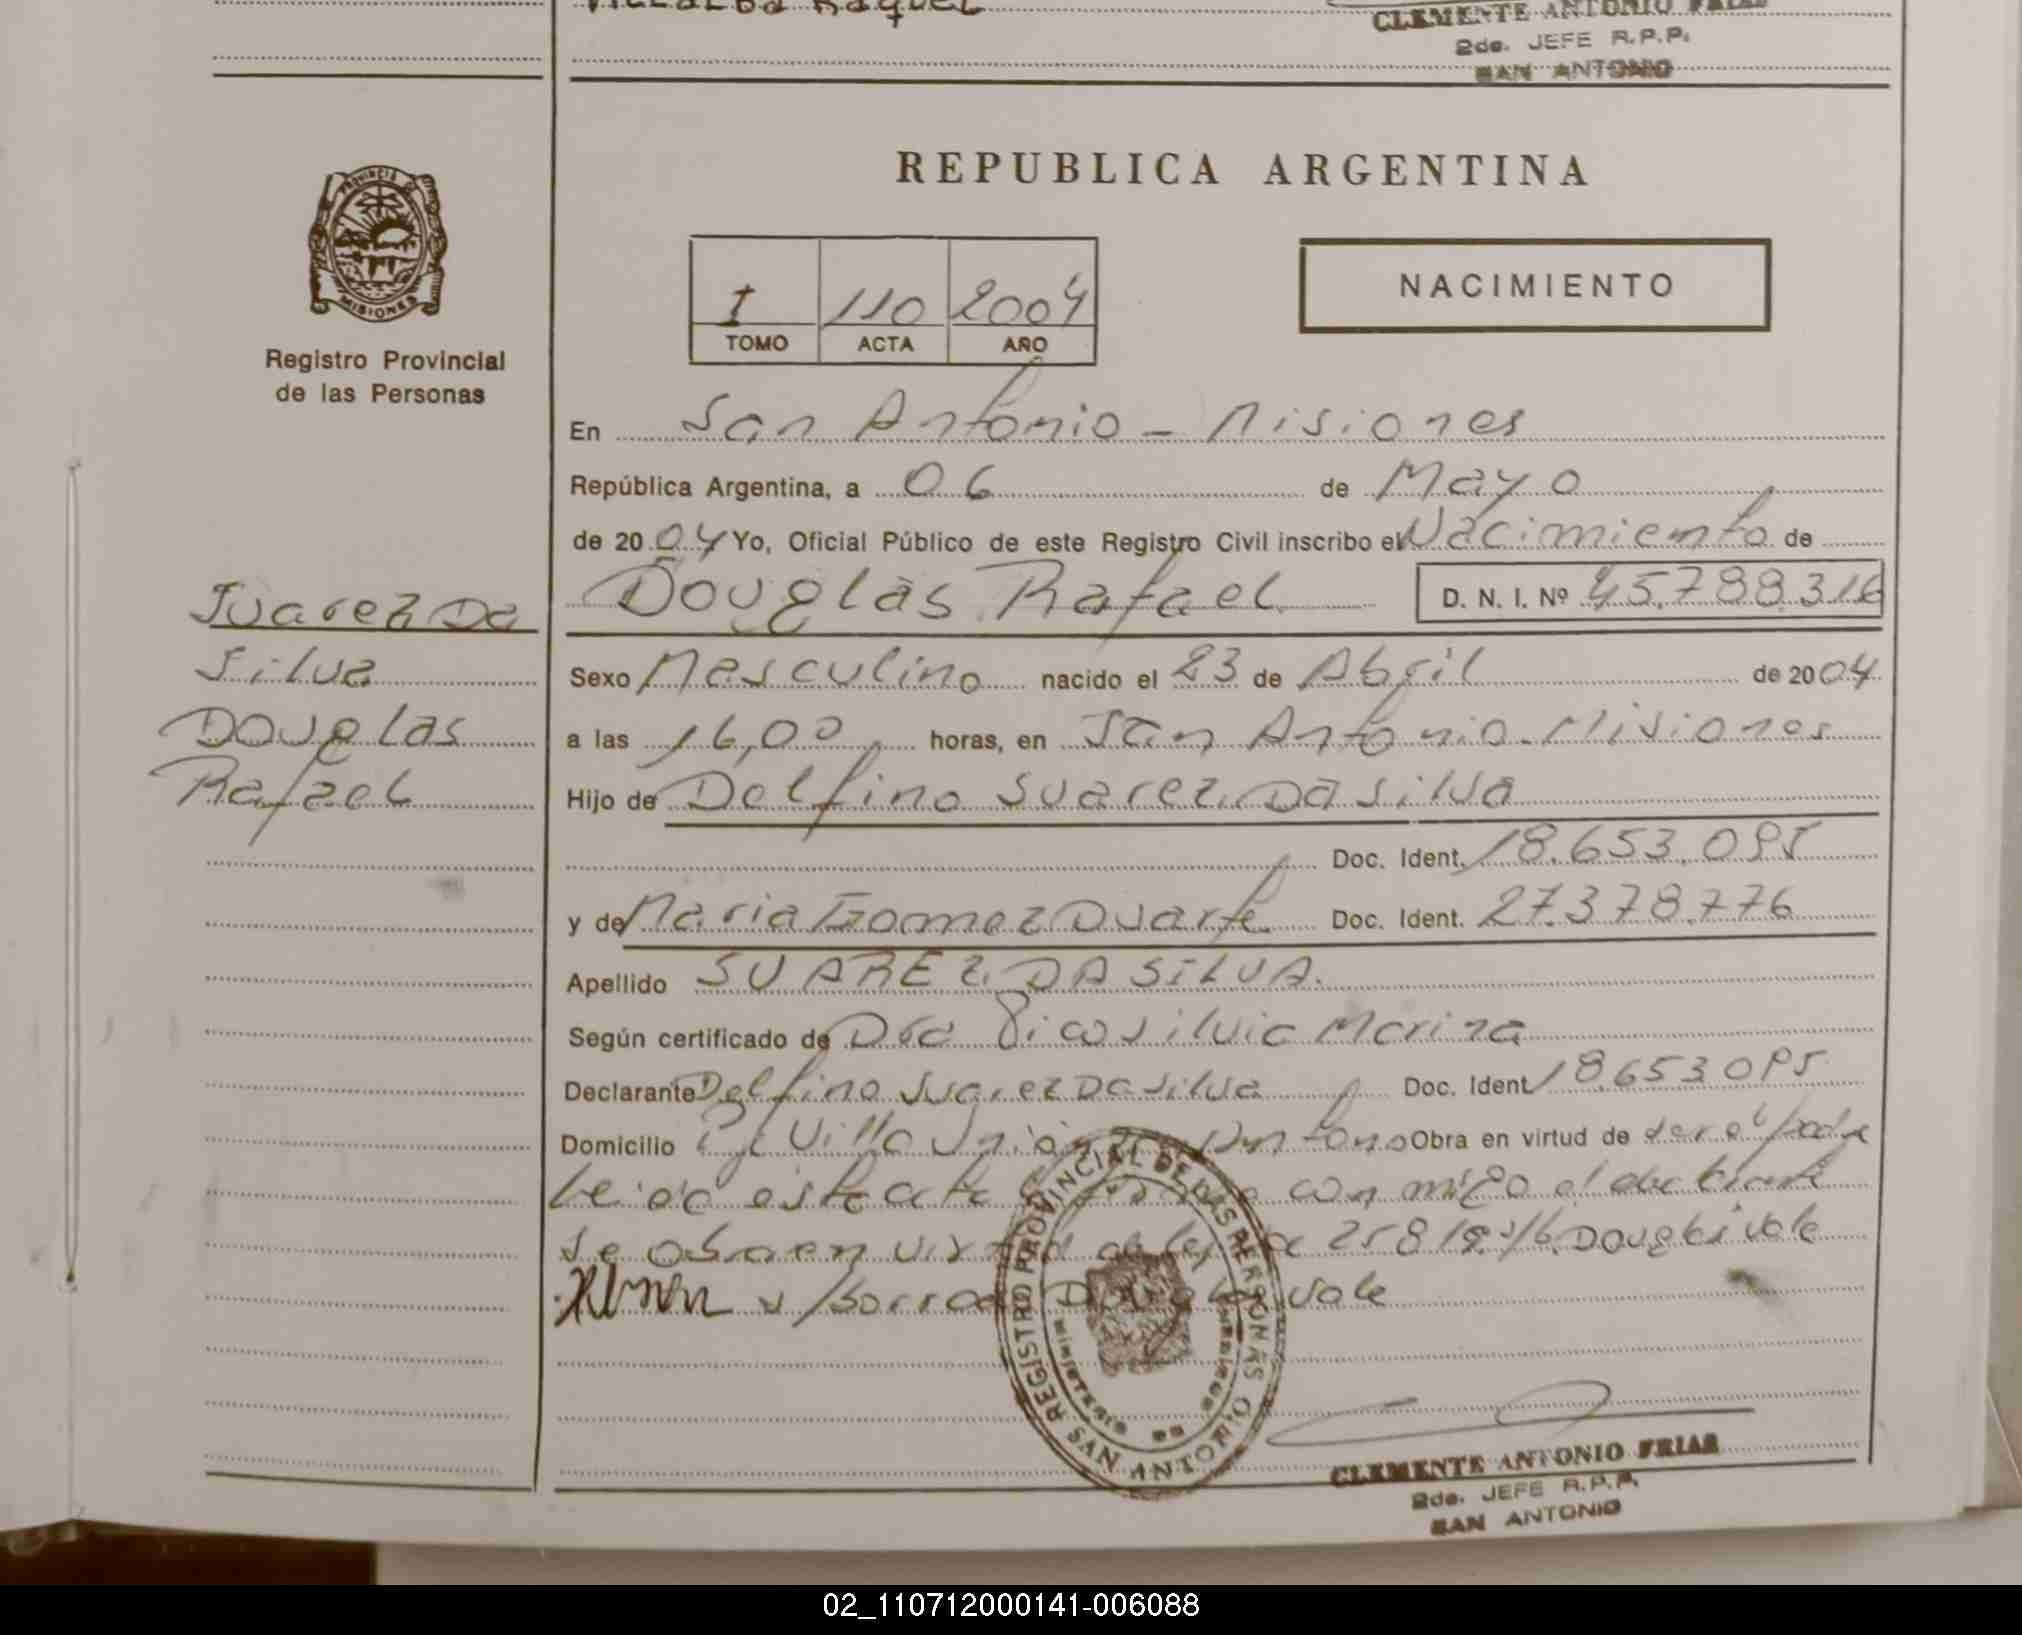 CLEMENTE ANTONIO FRIAS
2do. JEFE R.P.P.
SAN ANTONIO
PROVINCIA DE
MISIONES
Registro Provincial
de las Personas
REPUBLICA ARGENTINA
I 110 2004
TOMO ACTA AÑO
NACIMIENTO
En San Antonio - Misiones
República Argentina, a 06 de Mayo
de 2004 Yo, Oficial Público de este Registro Civil inscribo el Nacimiento de
Douglas Rafael D. N. I. Nº 45.788.316
Suarez Da
Silva
Douglas
Rafael
Sexo Masculino nacido el 23 de Abril de 2004
a las 16,00 horas, en San Antonio - Misiones
Hijo de Delfino Suarez Da Silva
Doc. Ident. 18.653.095
y de Maria Gomez Duarte Doc. Ident. 27.378.776
Apellido SUAREZ DA SILVA.
Según certificado de Dra Silvia Marina
Declarante Delfino Suarez Da Silva Doc. Ident 18.653.095
Domicilio Villa Unión San Antonio Obra en virtud de ser el padre
Leida este acta firma conmigo el declarante
Se obra en virtud de ley vale
Borrado vale
REGISTRO PROVINCIAL DE LAS PERSONAS
SAN ANTONIO
CLEMENTE ANTONIO FRIAS
2do. JEFE R.P.P.
SAN ANTONIO
02_110712000141-006088